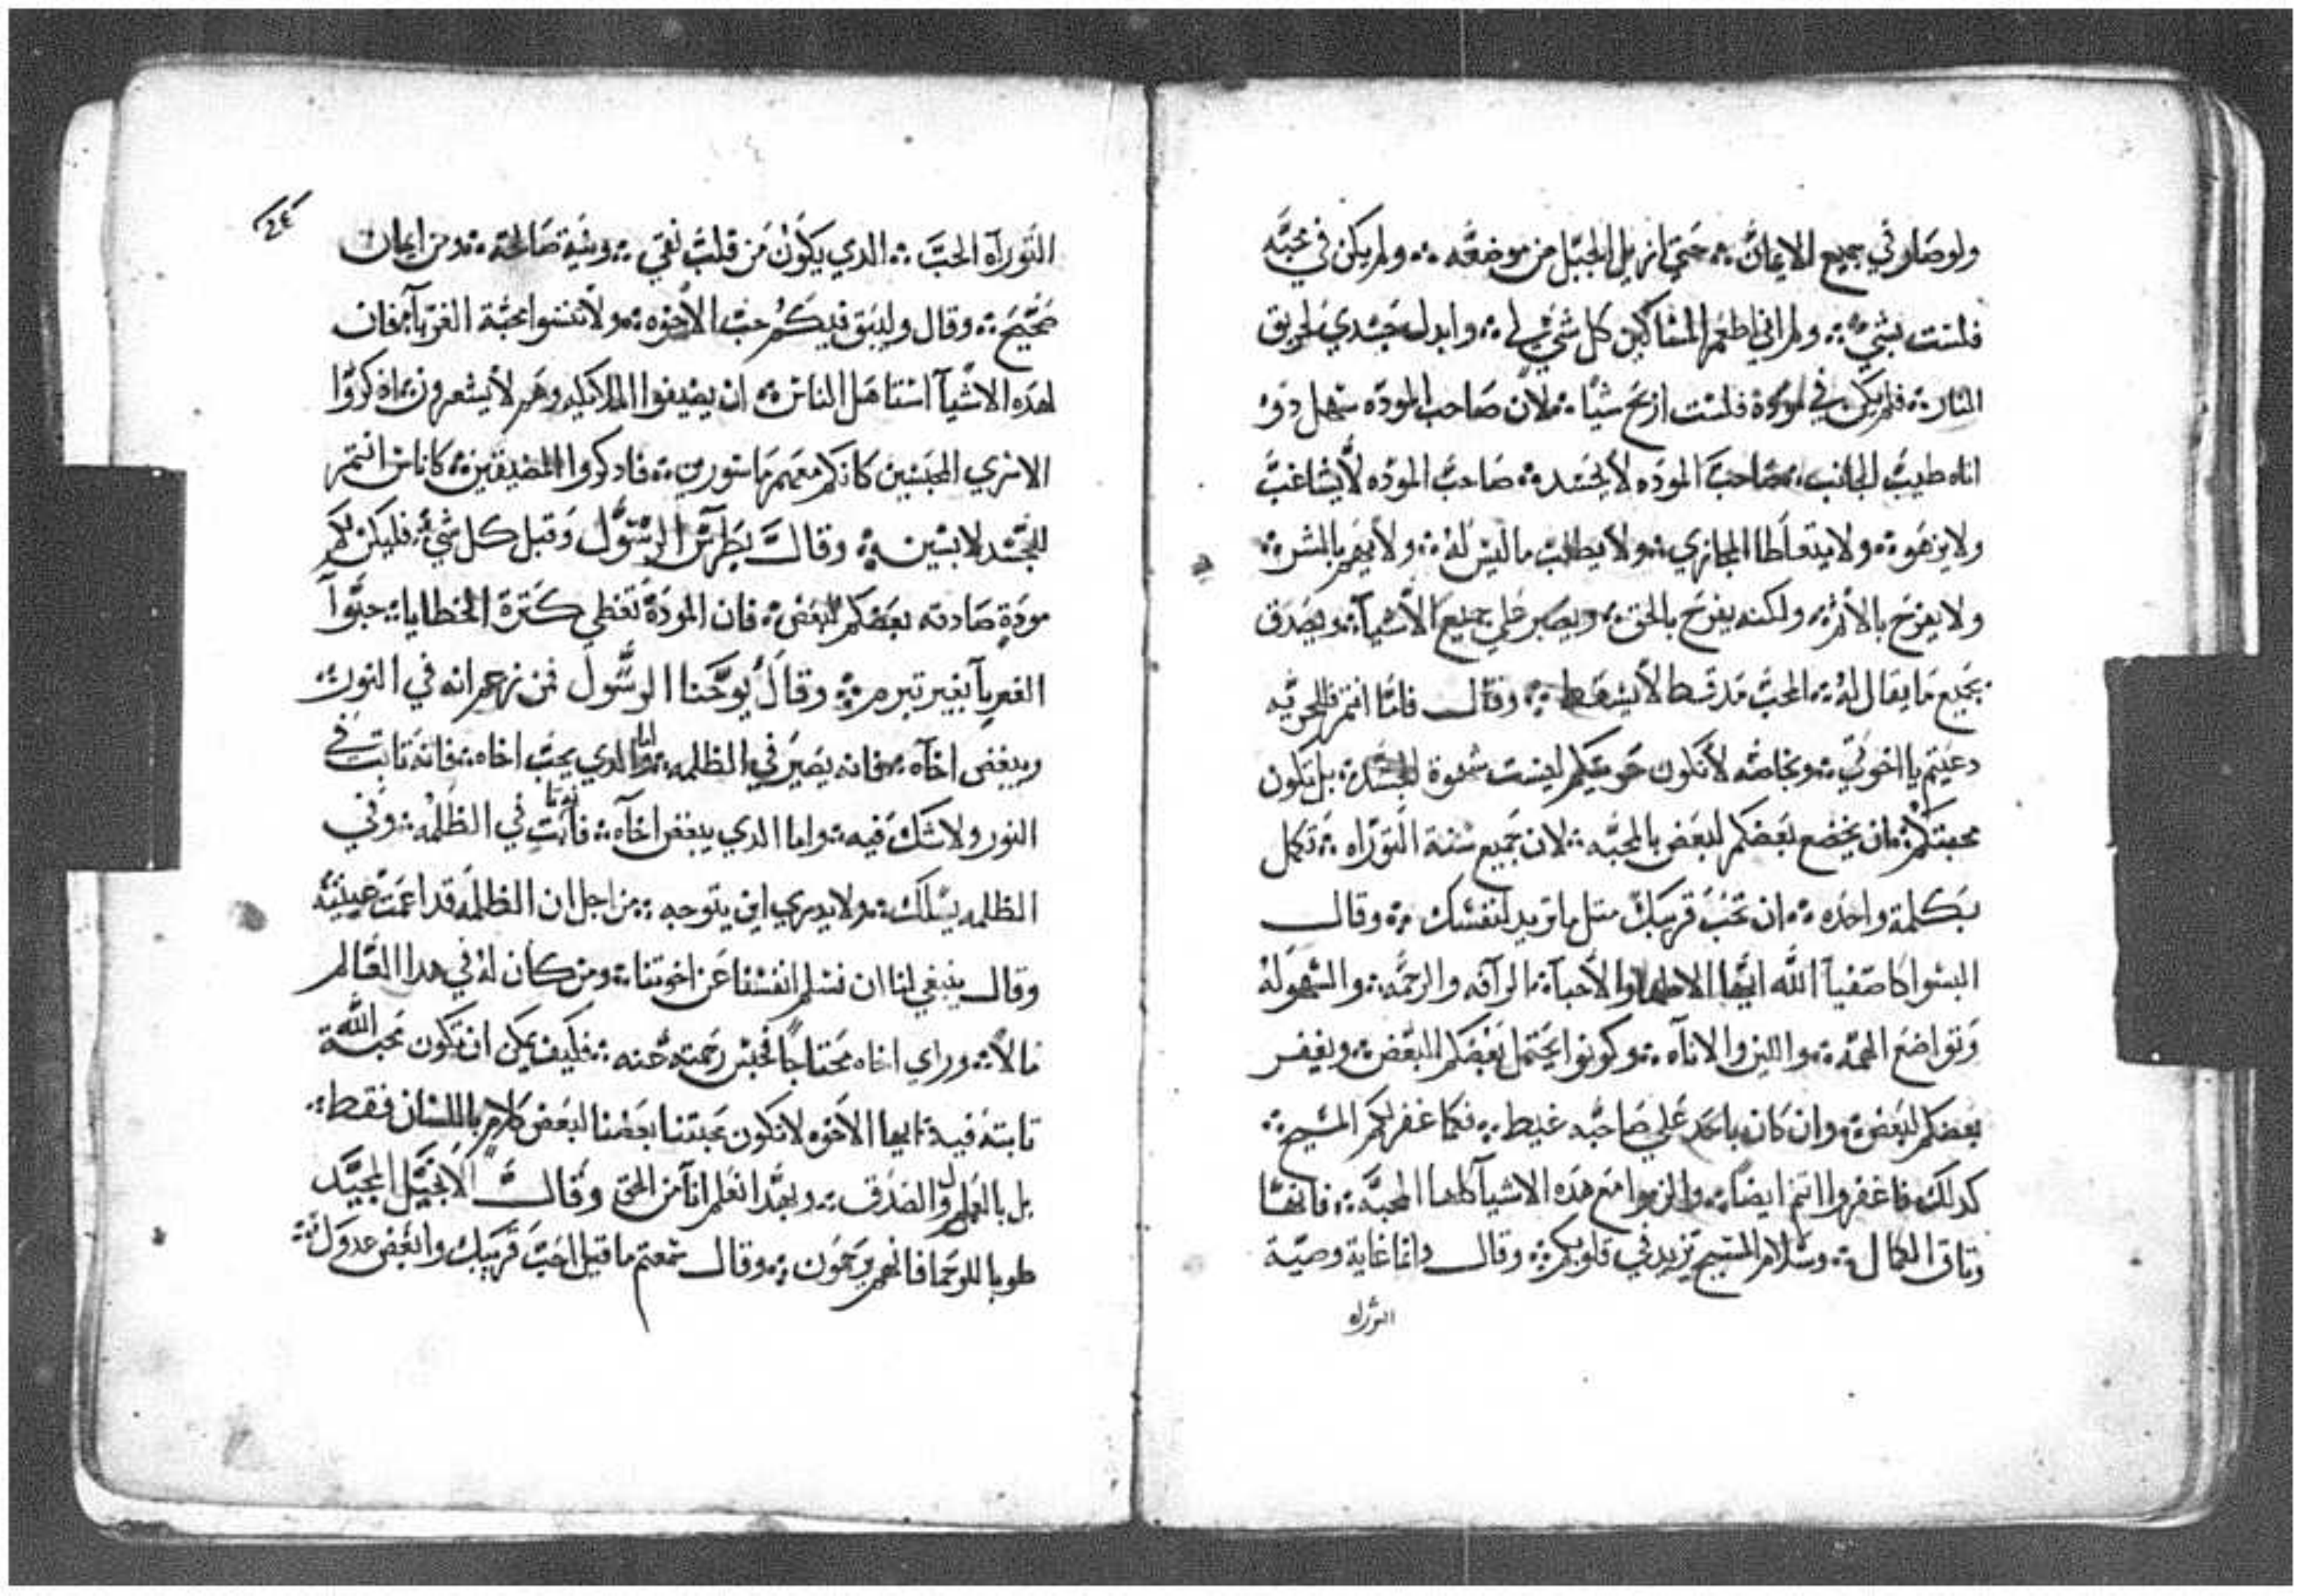 ولو صار في جميع الايمان ܀ حتي ازيل الجبل من موضعه ܀ ولم يكن في محبه
فلست بشي ܀ ولو اني اطعم المساكين كل شي لي ܀ وابدل جسدي لحريق
النار ܀ فلم يكن في مودة فلست اربح شيا ܀ لان صاحب الموده سهل دو
اناه طيب الجانب ܀ صاحب الموده لا يحسد ܀ صاحب الموده لا يشاغب
ولا يزهو ܀ ولا يتعاطا المجازي ܀ ولا يطلب ما ليس له ܀ ولا يهم بالشر ܀
ولا يفرح بالاثم ܀ ولكنه يفرح بالحق ܀ ويصبر علي جميع الاشيآ ܀ ويصدق
بجميع ما يقال له ܀ المحب قد قط لا يسقط ܀ وقال فاما انتم فللحريه
دعيتم يا اخوتي ܀ وبخاصه لا تكون حريتكم ليست شهوة للجسد ܀ بل تكون
محبتكم ܀ ان يخضع بعضكم لبعض بالمحبه ܀ لان جميع سنة التوراه ܀ تكمل
بكلمة واحده ܀ ان تحب قريبك متل ما تريد لنفسك ܀ وقال
البسوا كاصفيآ الله ايها الاطهار والاحبآ ܀ الرآفه والرحمه ܀ والسهوله
وتواضع الهمه ܀ واللين والاناه ܀ وكونوا يحتمل بعضكم البعض ܀ ويغفر
بعضكم لبعض ܀ وان كان باحد علي صاحبه غيط ܀ فكما غفر لكم المسيح ܀
كدلك فاغفروا انتم ايضا ܀ والزموا مع هده الاشيآ كلها المحبه ܀ فانها
وتاق الكمال ܀ وسلام المسيح تزيد في قلوبكم ܀ وقال وانما غاية وصية
التوراه
٤٤
التوراه الحب ܀ الدي يكون من قلب نقي ܀ ونية صالحة ܀ ومن ايمان
صحيح ܀ وقال وليبق فيكم حب الاخوه ܀ ولا تنسوا محبة الغربآ ܀ فان
لهده الاشيآ استاهل الناس ܀ ان يضيفوا الملايكه وهم لا يشعرون ܀ ادكروا
الاسري المحبسين كانكم معهم ماسورين ܀ فادكروا المضيقين ܀ كاناس انتم
للجسد لابسين ܀ وقال بطرس الرسول وقبل كل شي ܀ فليكن لكم
مودة صادقه بعضكم لبعض ܀ فان المودة تغطي كترة الخطايا ܀ حبوا
الغربآ بغير تبرم ܀ وقال يوحنا الرسول فمن زعم انه في النور ܀
ويبغض اخاه ܀ فانه يصير في الظلمه ܀ واما الدي يحب اخاه ܀ فانه تابت في
النور ولا شك فيه ܀ واما الدي يبغض اخاه ܀ فانه تابت في الظلمه ܀ وفي
الظلمه يسلك ܀ ولا يدري اين يتوجه ܀ من اجل ان الظلمه قد اعمت عينيه
وقال ينبغي لنا ان نسلم انفسنا عن اخوتنا ܀ ومن كان له في هدا العالم
مالا ܀ وراي اخاه محتاجا فحبس رحمته عنه ܀ فكيف يمكن ان تكون محبة الله
تابته فيه ܀ ايها الاخوه لا تكون محبتنا بعضنا لبعض كلام باللسان فقط ܀
بل بالفعل والصدق ܀ وبهدا نعلم انا من الحق وقال الانجيل المجيد
طوبا للرحما فانهم يرحمون ܀ وقال سمعتم ما قيل احب قريبك وابغض عدوك ܀